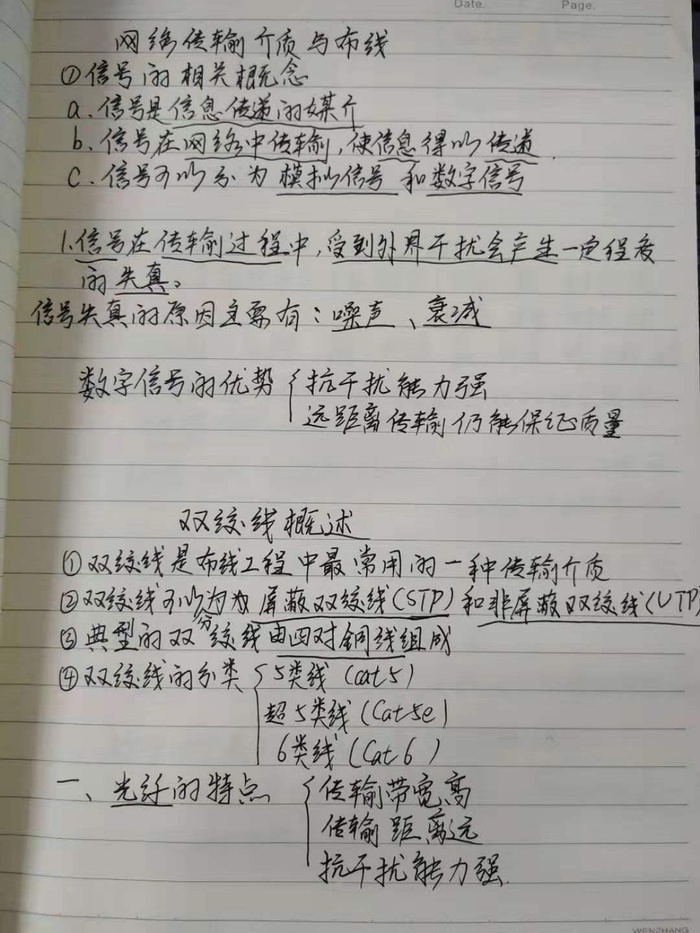 Date.
Page.
网络传输介质与布线
①信号的相关概念
a.信号是信息传递的媒介
b.信号在网络中传输,使信息得以传递.
c.信号可以分为模拟信号和数字信号
1.信号在传输过程中,受到外界干扰会产生一定程度
的失真。
信号失真的原因主要有:噪声、衰减
数字信号的优势{抗干扰能力强
远距离传输仍能保证质量
双绞线概述
①双绞线是布线工程中最常用的一种传输介质
②双绞线可以分为屏蔽双绞线(STP)和非屏蔽双绞线(UTP)
③典型的双绞线由四对铜线组成
④双绞线的分类{5类线(cat5)
超5类线(Cat5e)
6类线(Cat6)
一、光纤的特点{传输带宽高
传输距离远
抗干扰能力强.